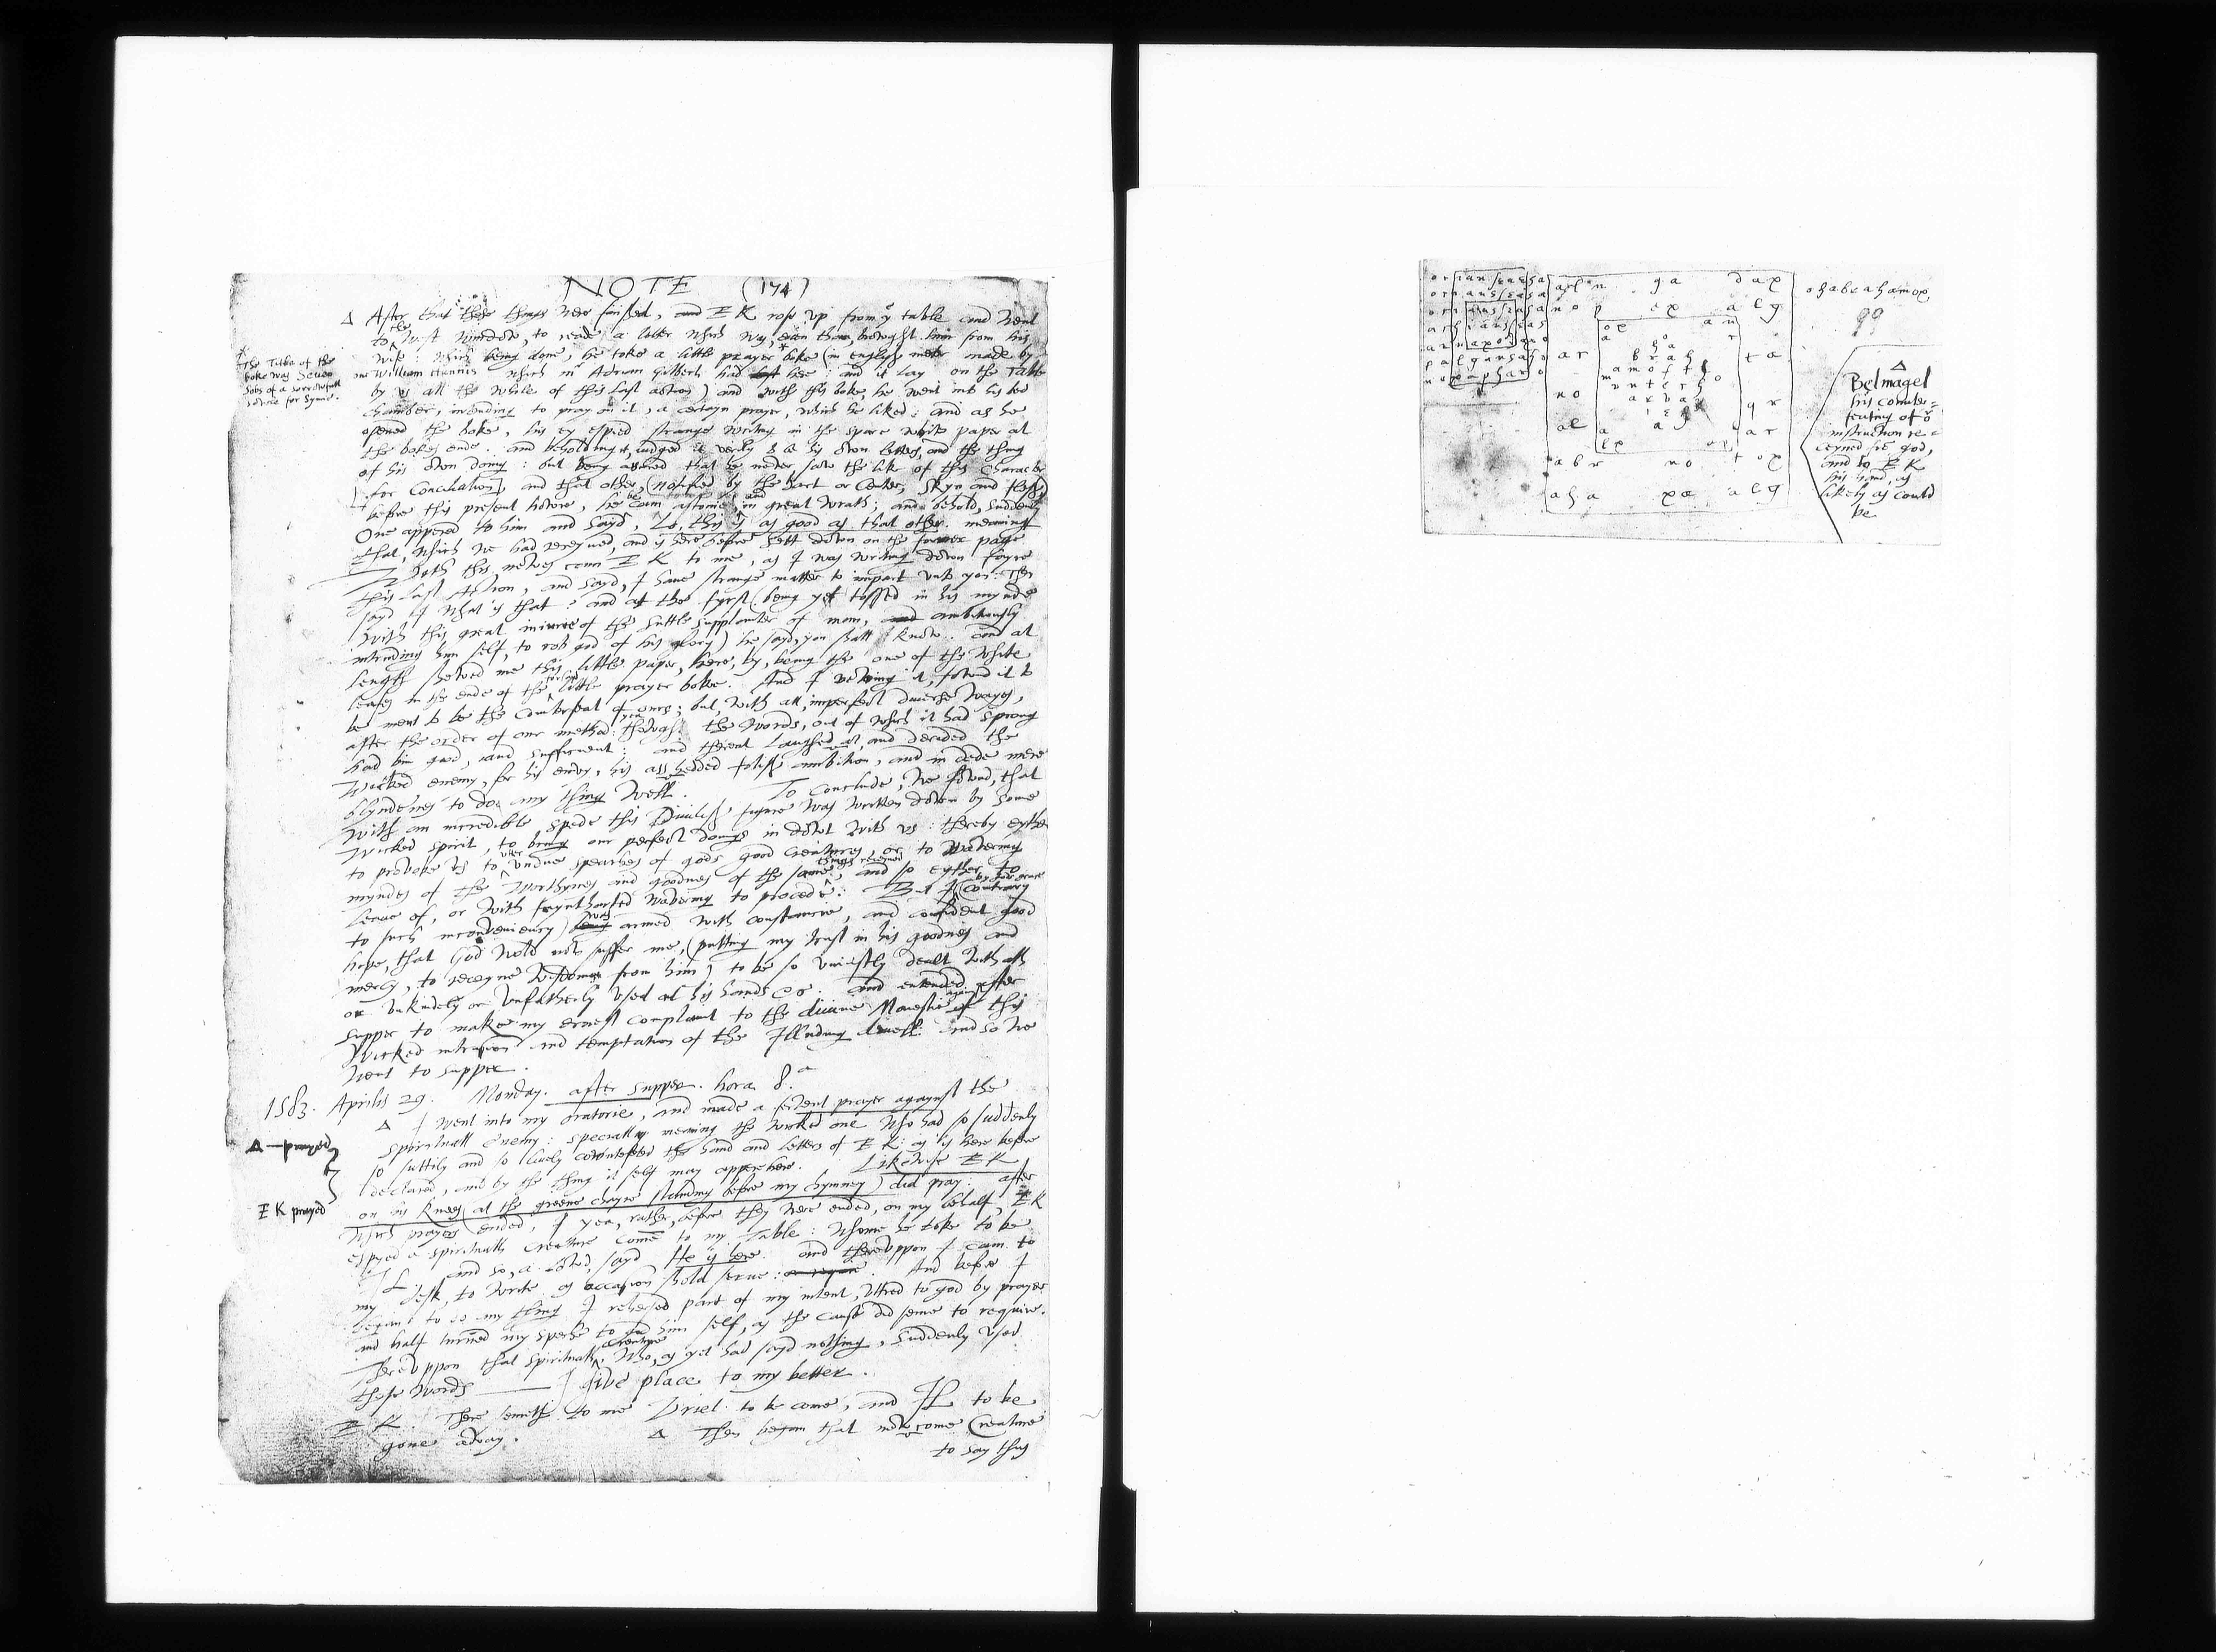 NOTE (174)
Δ After that these things were finished, and EK rose up from ye table and went
to the west window, to reade a letter which was, even then, browght him from his
wife : which being done, he toke a little prayer boke (in englysh meter made by
The Title of the
boke was Seven
sobs of a sorrowfull
sowle for synne.
one William Hunnis which mr Adrian Gilbert had left here : and it lay on the Table
by us all the while of this last action) and with this boke, he went into his bed
chamber, intending to pray on it, a certayn prayer, which he liked : and as he
opened the boke, his ey espied strange writing in the spare white paper at
the bokes ende . and beholding it, judged it verily to be his own letters, and the thing
of his own doing : but being assured that he never saw the like of this Character
for Conciliation, and that other, (notified by the hart or Center, skyn and flesh)
before this present howre, he becam astonied and in great wrath ; and behold, suddenly
One appered to him and sayd, Lo, this is as good as that other. meaning
that, which we had receyved, and is here before sett down on the former page
With this newes cam EK to me, as I was writing down fayre
this last Action, and sayd, I have strange matter to impart unto you : Then
sayd I what is that ? and at the fyrst (being yet tossed in his mynde
with this great iniurie of the suttle supplanter of man, and ambitiously
intruding him self, to rob god of his glory) he sayd, you shall know . and at
length shewed me this little paper, here, by, being the one of the white
leafes in the ende of the little prayer boke . And I vewing it, fownd it to
be ment to be the Counterfeat of ours ; but, with all, imperfect diverse wayes,
after the order of our method : though yea the words, out of which it had sprong
had bin good, and sufficient : and therat laughed at, and derided the
Wicked enemy, for his envy, his ass hedded folish ambition, and in dede mere
blyndenes to do any thing well . To Conclude, we fownd, that
with an incredible spede this Divilish figure was written down by some
wicked spirit, to bring our perfect doings in dowt with us : thereby eyther
to provoke us to utter undue speaches of gods good creatures, or to Wavering
myndes of the worthynes and goodnes of the same things receyved and so eyther to
leave of, or with fayntharted wavering to procede : But I (by gods grace contrary
to such inconveniency) being was armed with constancie, and confident good
hope, that God wold not suffer me, (putting my trust in his goodnes and
mercy, to receyve Wisdome from him) to be so uniustly dealt with all
or unkindely or unfatherly used at his hands &c . and entended after
supper to make my ernest complaint to the divine Maiestie against this
Wicked intrusion and temptation of the Illuding divell . And so we
went to supper .
1583. Aprilis 29. Monday. after supper. hora 8.a
Δ I went into my oratorie, and made a fervent prayer agaynst the
Δ—prayed
spirituall Enemy : specially meaning the wicked one who had so suddenly
so suttily and so lively cownterfeted the hand and letters of EK : as is here before
declared, and by the thing it self may appere here . Likewise EK
EK prayed
on his knees (at the greene chayre standing before my chymney) did pray : after
which prayers ended, I yea, rather, before they were ended, on my behalf, EK
espyed a spirituall Creature come to my Table : whome he toke to be
IL and so, a lowd, sayd He is here : and thereuppon I cam to
my desk, to write as occasion shold serve : . And before I
began to do any thing I rehersed part of my intent, uttred to god by prayer
and half turned my speche to god him self, as the cause did seme to require.
Thereuppon that spirituall creature, who, as yet had sayd nothing, suddenly used
these words —— I give place to my better .
EK. There semeth to me Uriel to be come, and IL to be
gone away . Δ Then began that new come Creature
to say thus
ga dax
ohabeahamox
99
nop ex alg
ox an
ha
brah
amofth
unterh
arvah
ar ta
no
qr
al ar
lx
abr no tox
aha alg
Δ
Belmagel
his counter-
feating of our
instruction re-
ceyved frō god,
and to EK
his hand, as
likely as could
be